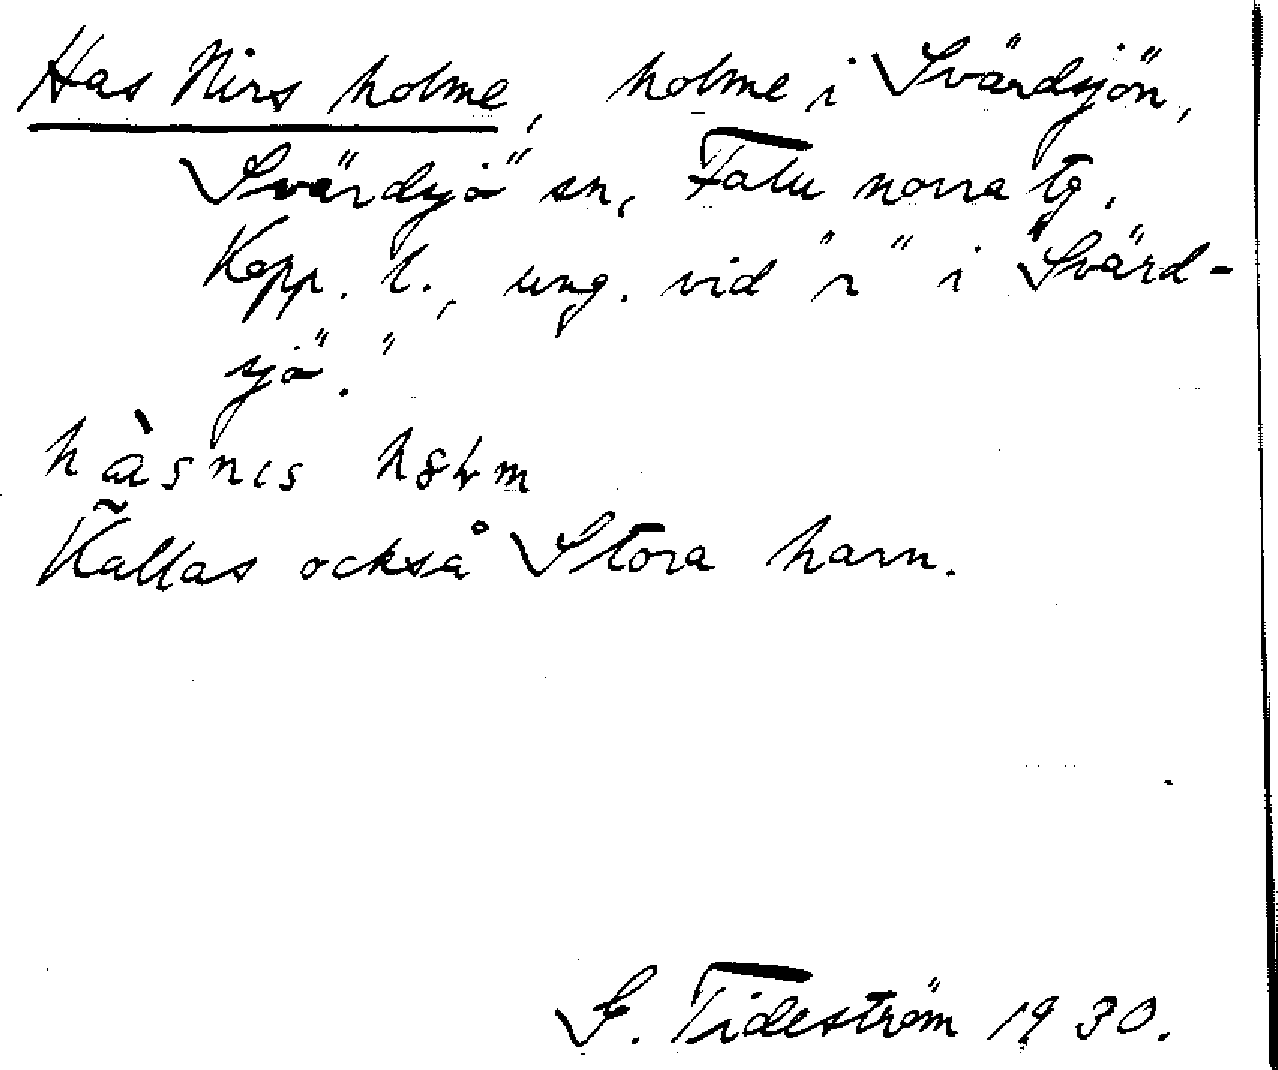 Has Nirs holme, holme i Svärdsjön,
Svärdsjö sn, Falu norra tg.
Kopp. l., ung. vid "r" i "Svärd-
sjö."
hàsnɩs
Kallas också Stora harn.
G. Tideström 1930.